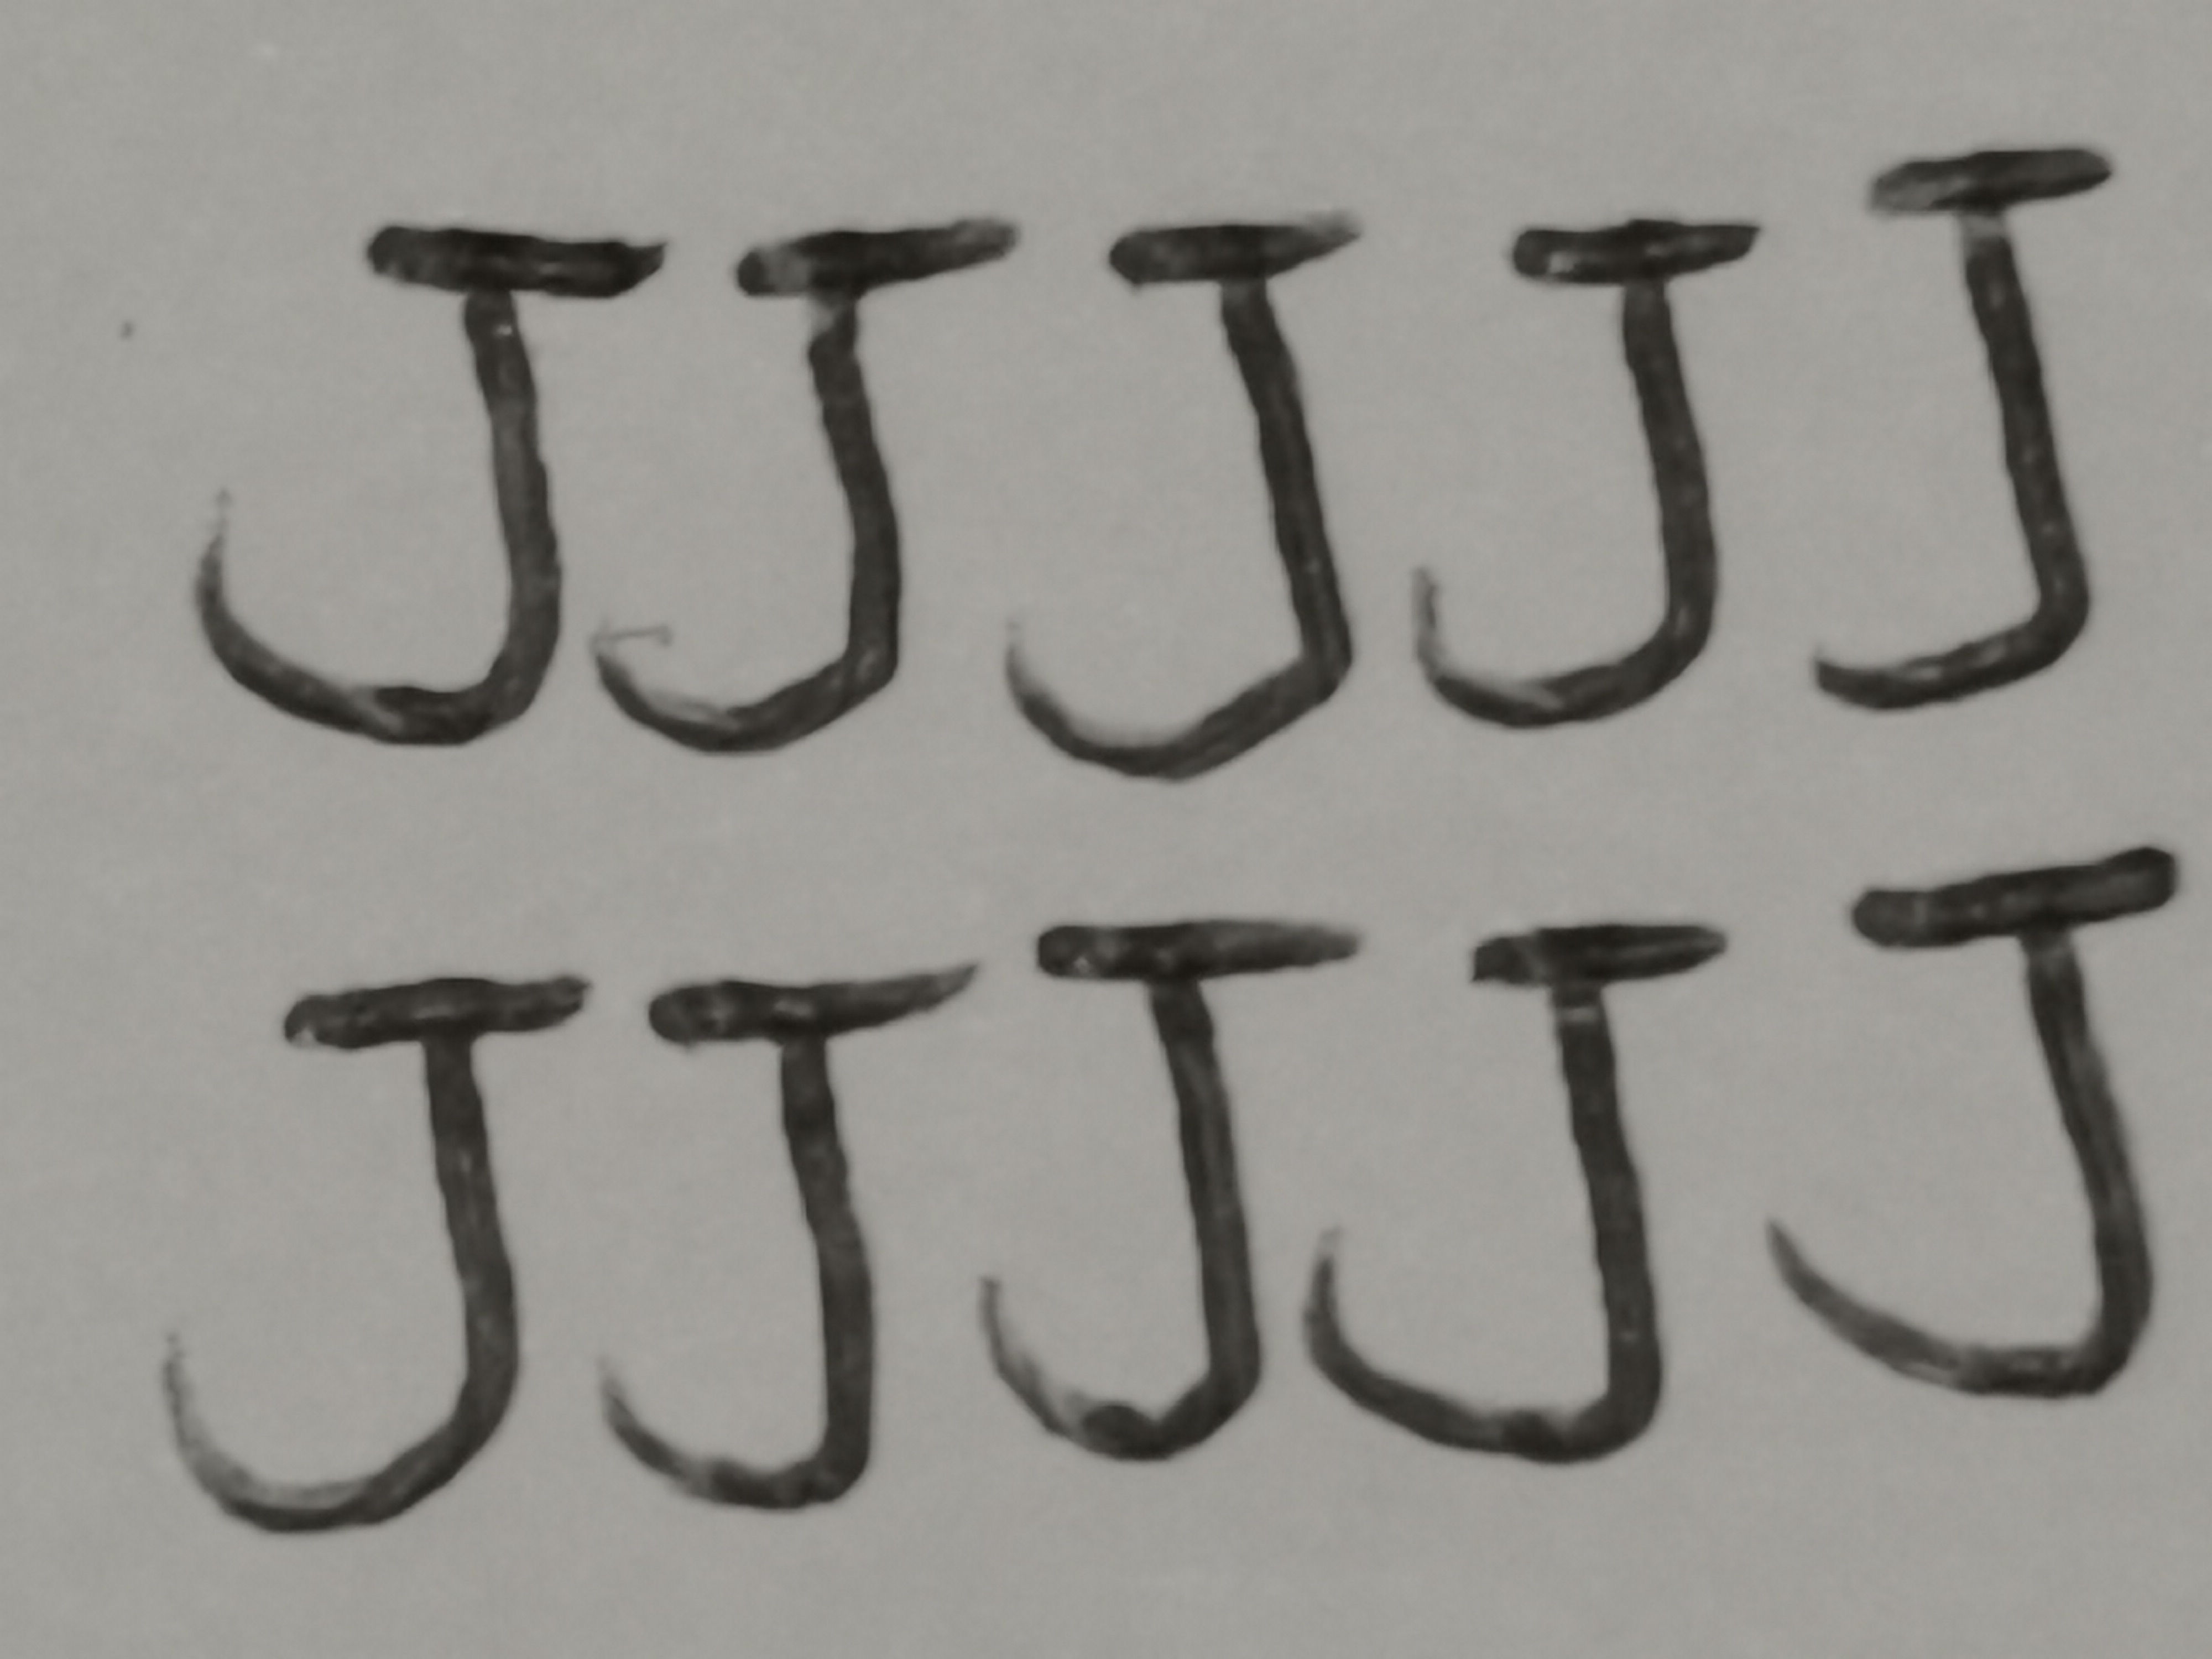 JJJJJ
JJJJJ